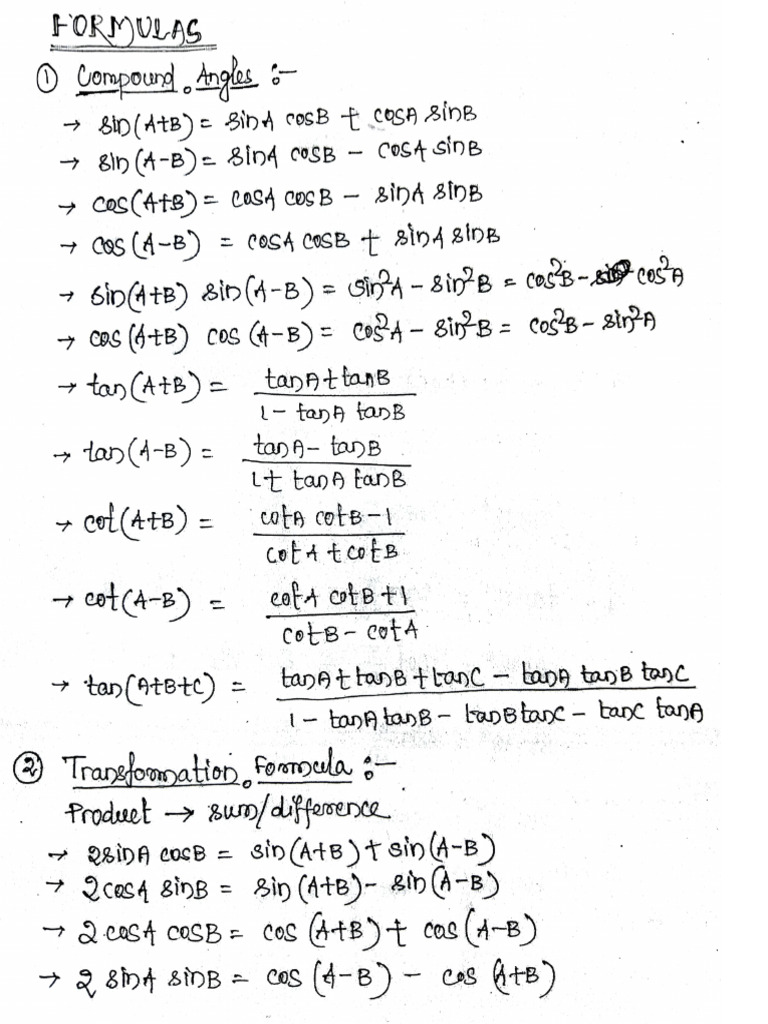 FORMULAS
① Compound Angles :-
→ sin(A+B) = sinA cosB + cosA sinB
→ sin(A-B) = sinA cosB - cosA sinB
→ cos(A+B) = cosA cosB - sinA sinB
→ cos(A-B) = cosA cosB + sinA sinB
→ sin(A+B) sin(A-B) = sin²A - sin²B = cos²B - cos²A
→ cos(A+B) cos(A-B) = cos²A - sin²B = cos²B - sin²A
→ tan(A+B) = tanA + tanB
1 - tanA tanB
→ tan(A-B) = tanA - tanB
1 + tanA tanB
→ cot(A+B) = cotA cotB - 1
cotA + cotB
→ cot(A-B) = cotA cotB + 1
cotB - cotA
→ tan(A+B+C) = tanA + tanB + tanC - tanA tanB tanC
1 - tanA tanB - tanB tanC - tanC tanA
② Transformation Formula :-
Product → sum/difference
→ 2sinA cosB = sin(A+B) + sin(A-B)
→ 2cosA sinB = sin(A+B) - sin(A-B)
→ 2cosA cosB = cos(A+B) + cos(A-B)
→ 2 sinA sinB = cos(A-B) - cos(A+B)